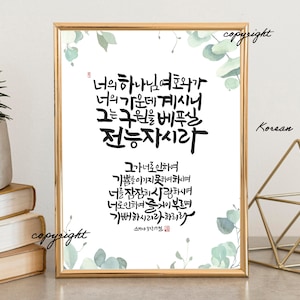 copyright
너의 하나님 여호와가
너의 가운데 계시니
그는 구원을 베푸실
전능자시라
Korean
그가 너로 인하여
기쁨을 이기지 못하여 하시며
너를 잠잠히 사랑하시며
너로 인하여 즐거이 부르며
기뻐하시리라 하리라
copyright